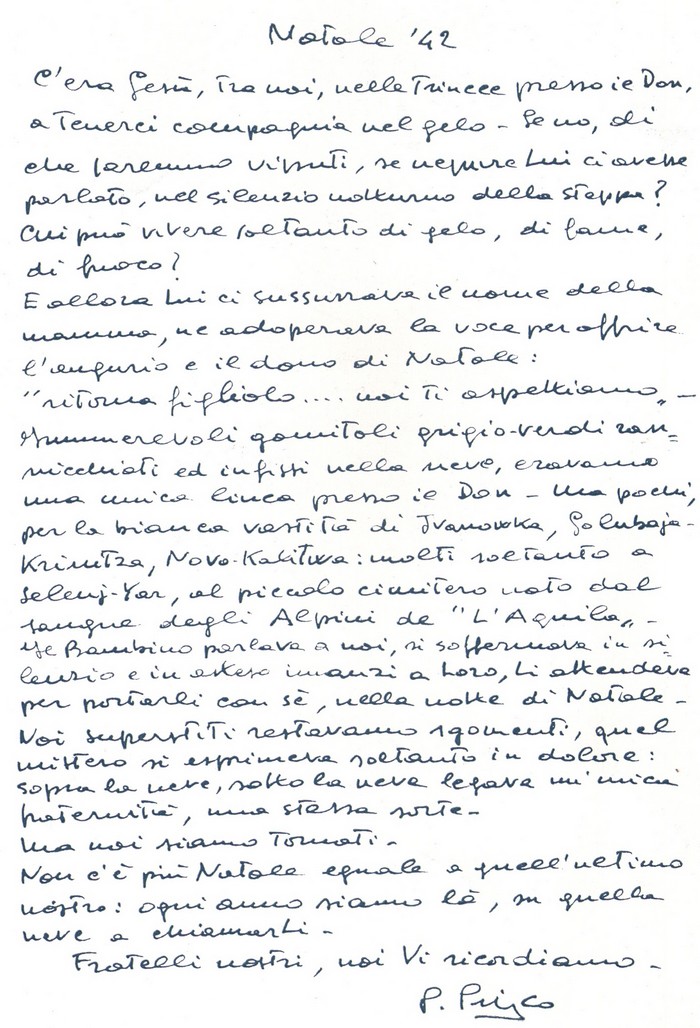 Natale '42
C'era Gesù, tra noi, nelle trincee presso il Don,
a tenerci compagnia nel gelo - Se no, di
che saremmo vissuti, se neppure Lui ci avesse
parlato, nel silenzio notturno della steppa?
Chi può vivere soltanto di gelo, di fame,
di fuoco?
E allora Lui ci sussurrava il nome della
mamma, ne adoperava la voce per offrire
l'augurio e il dono di Natale:
"ritorna figliolo.... noi ti aspettiamo„ -
Innumerevoli gomitoli grigio-verdi ran=
nicchiati ed infissi nella neve, eravamo
una unica linea presso il Don - Ma pochi,
per la bianca vastità di Ivanowka, Golubaja-
Krinitza, Novo-Kalitwa: molti soltanto a
Selenj-Yar, al piccolo cimitero nato dal
sangue degli Alpini de "L'Aquila„ -
Il Bambino parlava a noi, si soffermava in si=
lenzio e in attesa innanzi a Loro, Li attendeva
per portarli con sè, nella notte di Natale -
Noi superstiti restavamo sgomenti, quel
mistero si esprimeva soltanto in dolore:
sopra la neve, sotto la neve legava un'unica
fraternità, una stessa sorte -
Ma noi siamo tornati -
Non c'è più Natale eguale a quell'ultimo
nostro: ogni anno siamo là, su quella
neve a chiamarLi -
Fratelli nostri, noi Vi ricordiamo -
P. Prisco